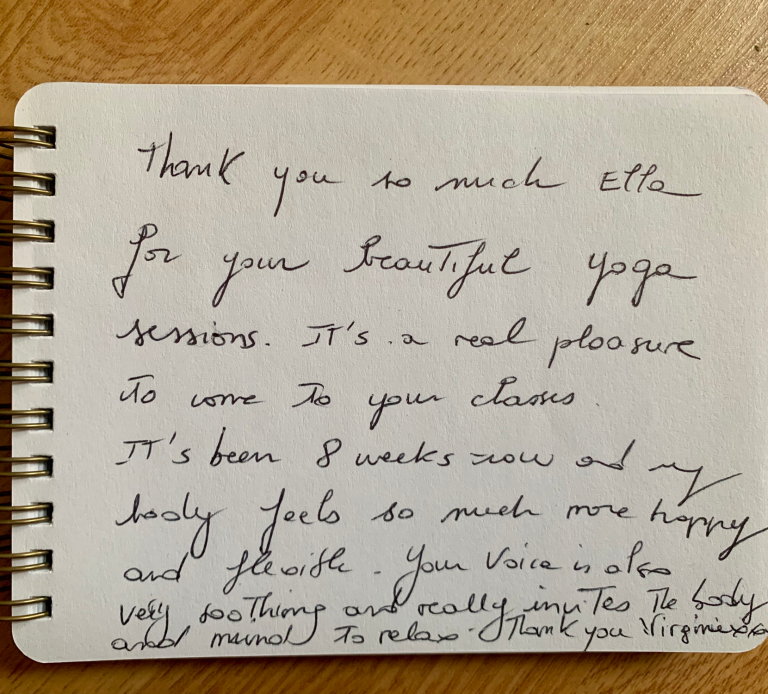 Thank you so much Ella
for your beautiful yoga
sessions. It's a real pleasure
to come to your classes.
It's been 8 weeks now and my
body feels so much more happy
and flexible. Your voice is also
very soothing and really invites the body
and mind to relax. Thank you Virginie